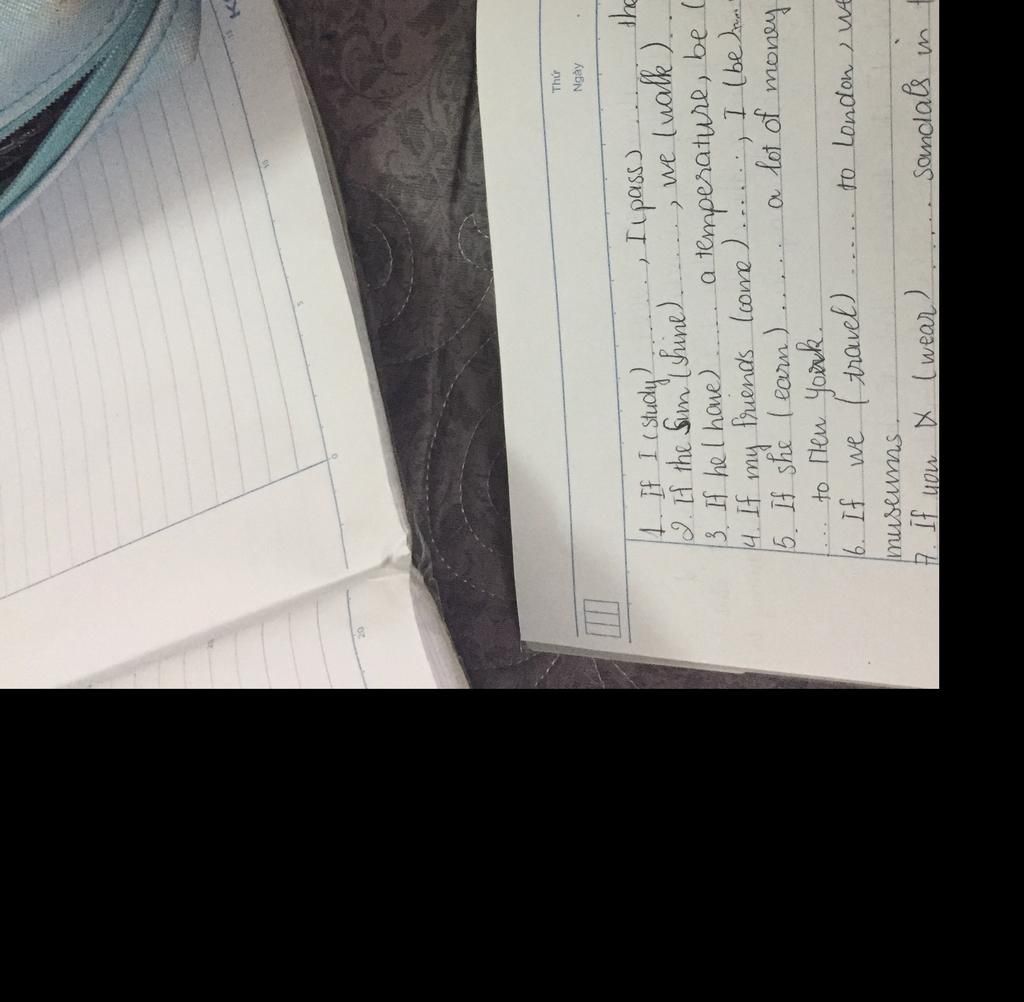 Thứ
Ngày
1. If I (study) ........., I (pass) ......... the
2. If the Sun (shine) ........, we (walk) ...
3. If he (have) ....... a temperature, be (
4. If my friends (come) ......., I (be) .....
5. If she (earn) ...... a lot of money
.... to New York.
6. If we (travel) ...... to London, we
museums.
7. If you (wear) ...... sandals in